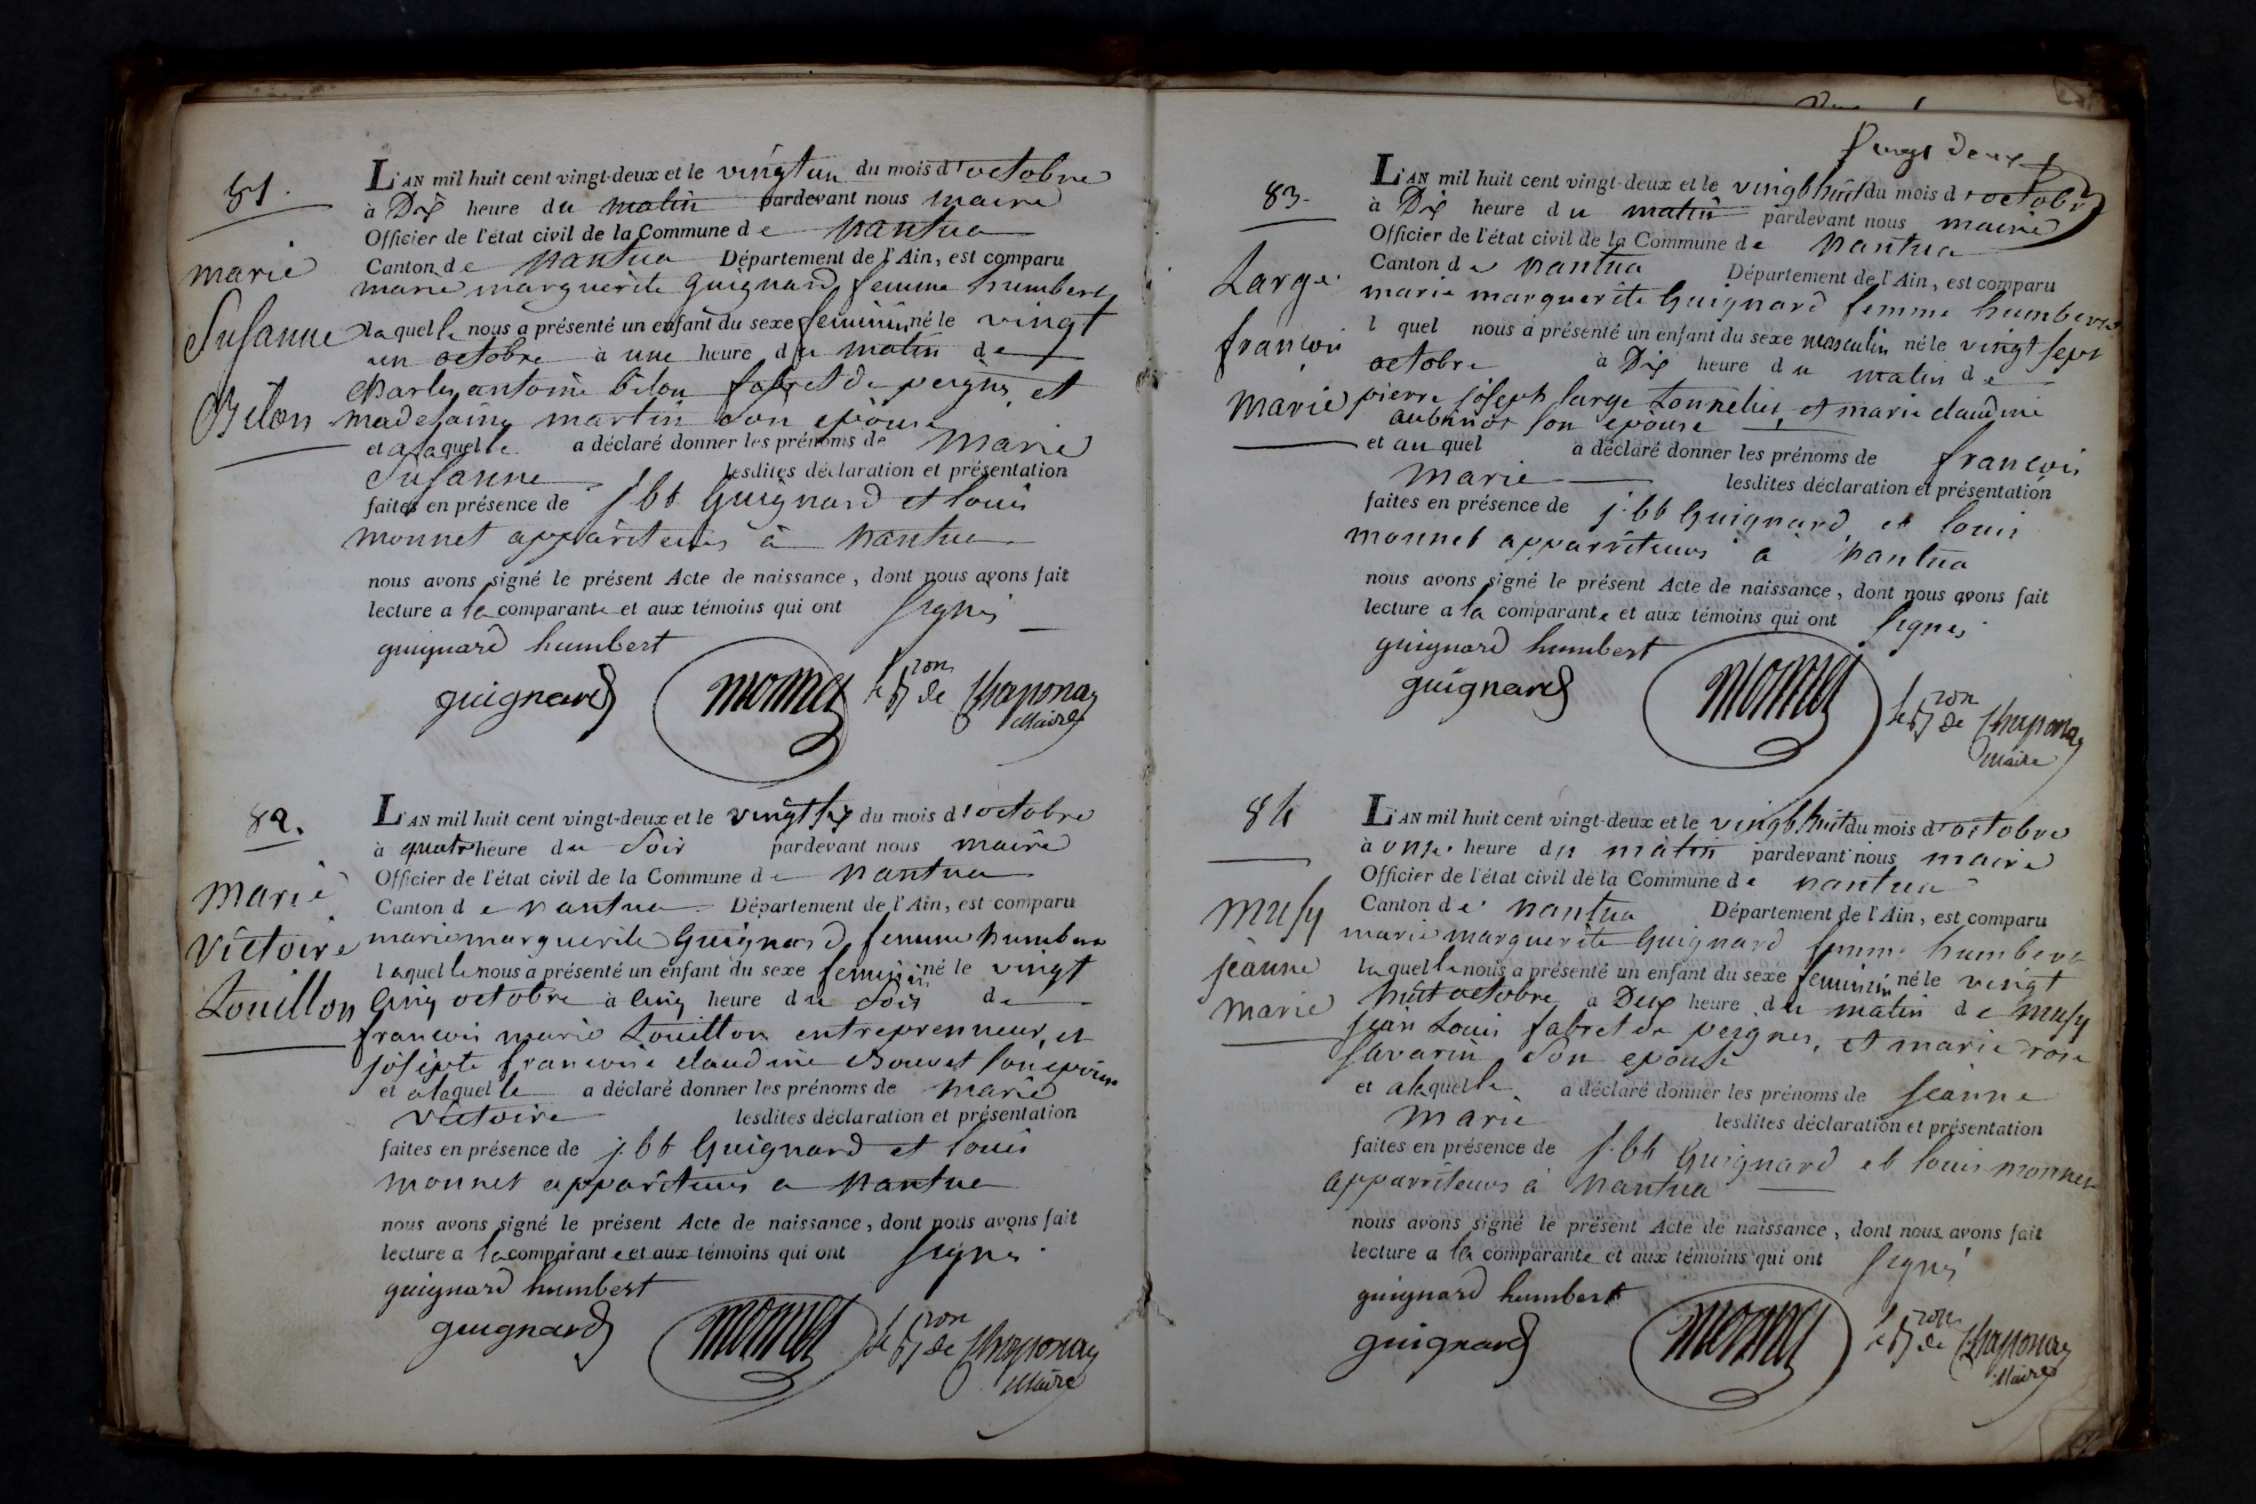 81.
marie
Susanne
Bilon
L'AN mil huit cent vingt-deux et le vingt un du mois d'octobre
à Dix heure du matin pardevant nous maire
Officier de l'état civil de la Commune de nantua
Canton de nantua Département de l'Ain, est comparu
marie marguerite Guignard femme humbert
laquelle nous a présenté un enfant du sexe feminin né le vingt
un octobre à une heure du matin de
Charles antoine bilon fabrt de peignes et
madelaine martin son epouse
et a laquelle a déclaré donner les prénoms de marie
Susanne lesdites déclaration et présentation
faites en présence de j bt Guignard et louis
monnet appariteurs à nantua
nous avons signé le présent Acte de naissance, dont nous avons fait
lecture a la comparante et aux témoins qui ont signés
guignard humbert
guignard monnet le Bron de Chaponay
Maire
82.
marie
victoire
Touillon
L'AN mil huit cent vingt-deux et le vingt six du mois d'octobre
à quatre heure du soir pardevant nous maire
Officier de l'état civil de la Commune de nantua
Canton de nantua Département de l'Ain, est comparu
marie marguerite Guignard femme humbert
laquelle nous a présenté un enfant du sexe feminin né le vingt
cinq octobre à cinq heure du soir de
francois marie Touillon entreprenneur, et
josepte francoise claudine Bouvet son epouse
et a laquelle a déclaré donner les prénoms de marie
victoire lesdites déclaration et présentation
faites en présence de j. bt Guignard et louis
monnet appariteurs a nantua
nous avons signé le présent Acte de naissance, dont nous avons fait
lecture a la comparante et aux témoins qui ont signés
guignard humbert
guignard monnet le Bron de Chaponay
Maire
vingt deux
83.
Large
francois
marie
L'AN mil huit cent vingt-deux et le vingt huit du mois d'octobre
à Dix heure du matin pardevant nous maire
Officier de l'état civil de la Commune de nantua
Canton de nantua Département de l'Ain, est comparu
marie marguerite Guignard femme humbert
l quel nous a présenté un enfant du sexe masculin né le vingt sept
octobre à Dix heure du matin de
pierre joseph large tonnelier, et marie claudine
aubinot son epouse
et au quel a déclaré donner les prénoms de francois
marie lesdites déclaration et présentation
faites en présence de j. bt Guignard et louis
monnet apparriteurs a nantua
nous avons signé le présent Acte de naissance, dont nous avons fait
lecture a la comparante et aux témoins qui ont signés
guignard humbert
guignard monnet le Bron de Chaponay
maire
84
musy
jeanne
marie
L'AN mil huit cent vingt-deux et le vingt huit du mois d'octobre
à onse heure du matin pardevant nous maire
Officier de l'état civil de la Commune de nantua
Canton de nantua Département de l'Ain, est comparu
marie marguerite Guignard femme humbert
laquelle nous a présenté un enfant du sexe feminin né le vingt
huit octobre à Deux heure du matin de musy
jean Louis fabrt de peignes, et marie rose
savarin son epouse
et a laquelle a déclaré donner les prénoms de jeanne
marie lesdites déclaration et présentation
faites en présence de j. bt Guignard et louis monnet
apparriteurs à nantua
nous avons signé le présent Acte de naissance, dont nous avons fait
lecture a la comparante et aux témoins qui ont signés
guignard humbert
guignard monnet le Bron de Chaponay
Maire